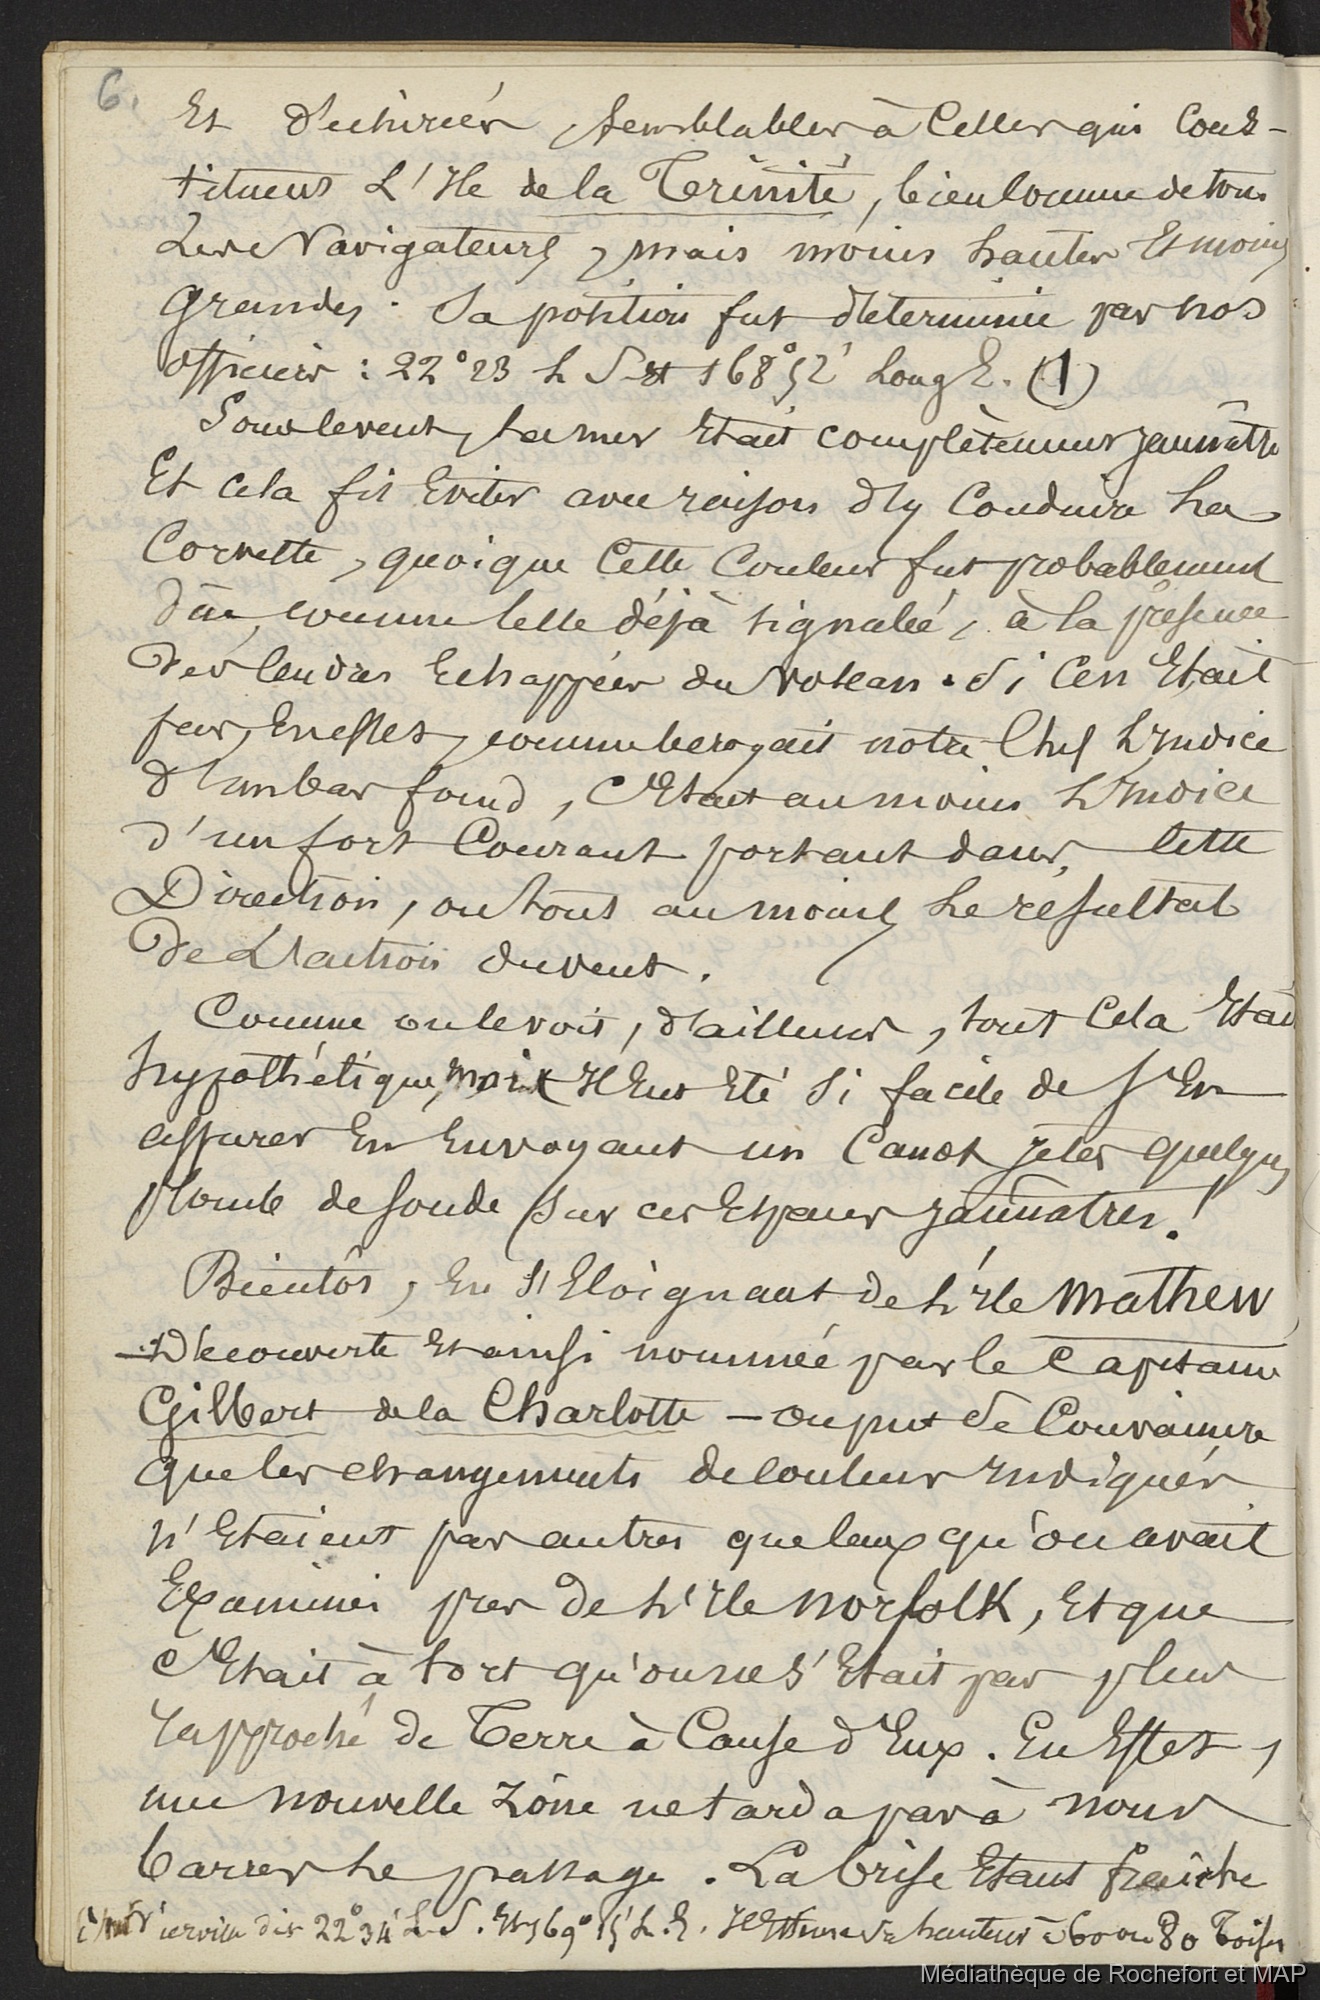 6.
Et déchirées semblables à celles qui cons-
tituent l'Ile de la Trinité, bien connue de tous
les Navigateurs, mais moins hautes Et moins
grandes. Sa position fut déterminée par nos
officiers : 22°23 L S et 168°52' Long E. (1)
Sous le vent, la mer Etait complètement jaunâtre
Et cela fit Eviter avec raison d'y conduire La
Corvette, quoique Cette Couleur fut probablement
dûe, comme celle déjà signalée, à la présence
des cendres Echappées du volcan. Si Cen Etait
pas, En effet, comme le croyait notre Chef L'Indice
d'un bas fond, c'Etait au moins L'Indice
d'un fort Courant portant dans cette
Direction, ou tout au moins Le résultat
De L'action du vent.
Comme on le voit, d'ailleurs, tout Cela Etait
hypothétique, mais Il Eut Eté Si facile de s'En
assurer En Envoyant un Canot jeter quelques
plombs de sonde sur ces Espaces jaunâtres !
Bientôt, En s'Eloignant de L'Ile Mathew
– Découverte Et ainsi nommée par le Capitaine
Gilbert de la Charlotte – on put Se Convaincre
que les changements de couleur Indiqués
n'Etaient pas autres que ceux qu'on avait
Examinés près de L'Ile Norfolk, Et que
c'Etait à tort qu'on ne s'Etait pas plus
rapproché de Terre à Cause d'Eux. En Effet,
une nouvelle Zône ne tarda pas à nous
barrer Le passage. La brise Etant fraîche
dit 22°34' L. S. Et 169° 15' L. E. Il Estime sa hauteur à 60 ou 80 Toises
Médiathèque de Rochefort et MAP